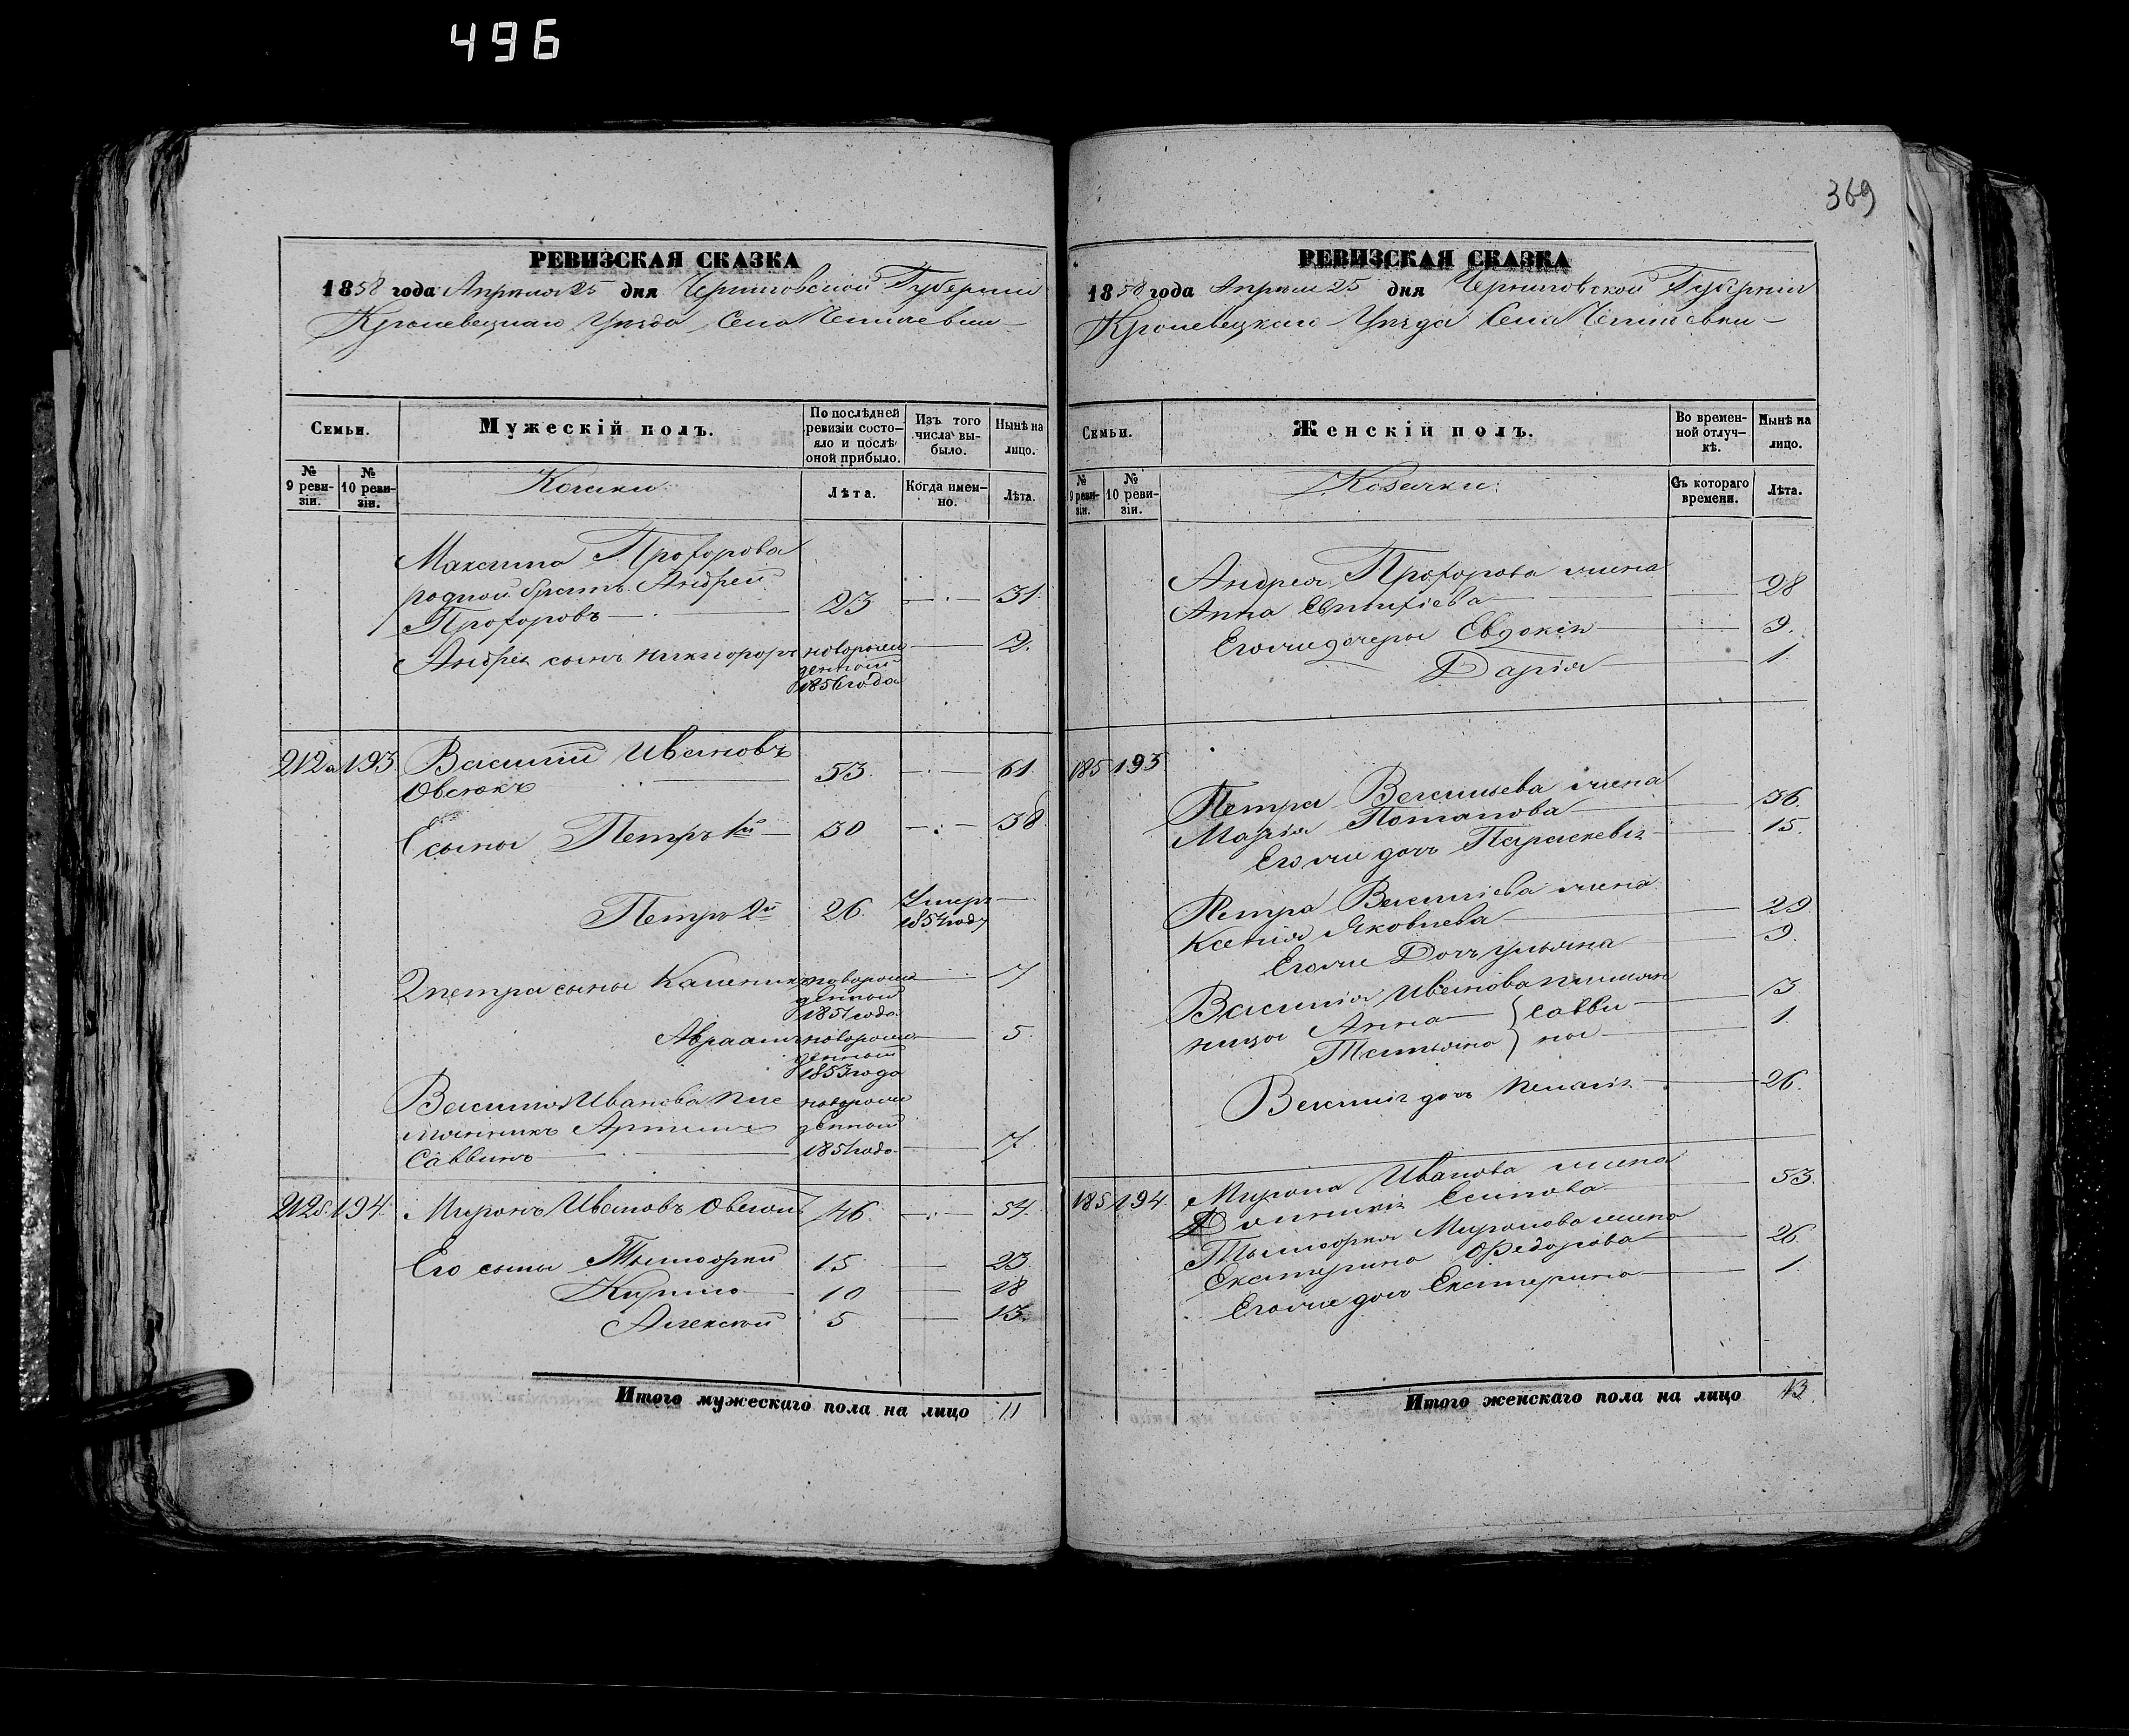 496
РЕВИЗСКАЯ СКАЗКА
1858 года Апреля 25 дня Черниговской Губернии
Кролевецкаго Уезда Села
Семьи.
Мужескій полъ.
По послѣдней ревизіи состо-
яло и послѣ
оной прибыло.
Изъ того
числа вы-
было.
Нынѣ на
лицо.
№
9 реви-
зіи.
№
10 реви-
зіи.
Козаки
Лѣта.
Когда имен-
но.
Лѣта.
Максима Прохорова
родной братъ Андрей
Прохоровъ 23 31.
Андрея сынъ Никифоръ новорож
денный
1856 года 2.
212а 193. Василий Ивановъ
Овсюкъ 53. 61
Е сыны Петръ 1й 30 38
Петръ 2й 26 Умеръ
1854 году
2 петра сыны Каленикъ новорож
денной
1851 года 7
Авраамъ новорож
денный
1853 года 5.
Василия Иванова пле новорож
мянникъ Артемъ денной
Саввинъ 1851 года 7.
212б. 194. Миронъ Ивановъ Овсюкъ 46. 54.
Его сыны Тимофей 15 23
Кирило 10 18
Алексей 5 13.
Итого мужескаго пола на лицо 11
369
РЕВИЗСКАЯ СКАЗКА
1858 года Апреля 25 дня Черниговской Губернии
Кролевецкаго Уезда Села
Семьи.
Женскій полъ.
Во времен-
ной отлуч-
кѣ.
Нынѣ на
лицо.
№
9 реви-
зіи.
№
10 реви-
зіи.
Козачки
Съ котораго
времени.
Лѣта.
Андрея Прохорова жена
Анна 28
Его же дочери Евдокія 9.
Дарія 1.
185 193
Петра Васильева жена
Марія Потапова 36.
Его же дочь Параскевія 15.
Петра Василіева жена
Ксенія Яковлева 29
Его же Дочь Ульяна 9.
Василія Иванова племян
ницы Анна } Савви 13
Татьяна } ны 1.
Василія дочь Пелагія 26.
185 194. Мирона Иванова жена
Есипова 53.
Тимофея Миронова жена
Екатерина Федорова 26.
Его же дочь Екатерина 1.
Итого женскаго пола на лицо 13